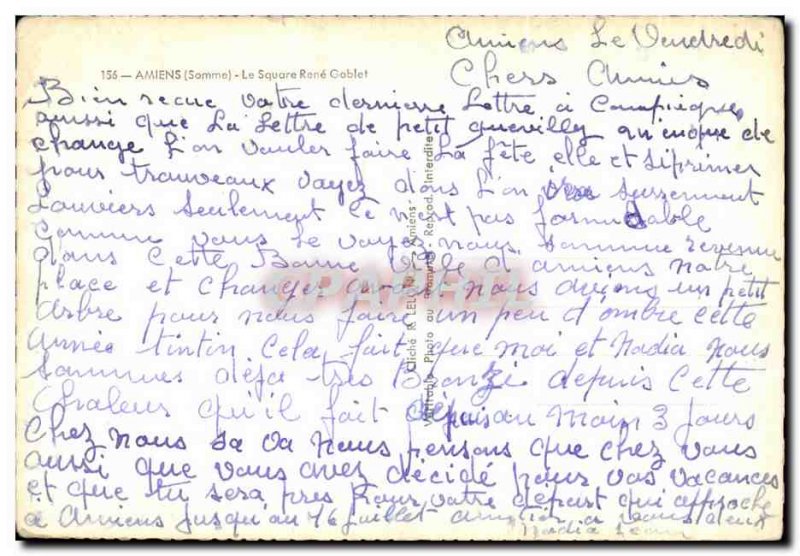 Amiens Le Vendredi
156 — AMIENS (Somme) - Le Square René Goblet
Chers Amies
Bien recue votre dernierre Lettre à Compiegne
aussi que La Lettre de petit quevilly qu'enque de
change L'on vouler faire La fête elle et siprimer
pour trauveaux vayez dons L'on ira surrement
Louviers seulement Ce n'est pas formidable
Comme vous Le voyez nous sommme revenue
dans Cette Bonne ville d'amiens notre
place et changer avant nous avions un petit
arbre pour nous faire un peu d'ombre cette
année tintin Cela fait que moi et Nadia nous
sommes déja très Bronzé depuis Cette
Chaleur qu'il fait depuis au moin 3 jours
Chez nous sa va nous pensons que chez vous
aussi que vous avez décidé pour vos vacances
et que tu sera pres pour votre depart qui approche
à Amiens jusqu'au 16 juillet a vous deux
Nadia
Cliché R. LELONG - Amiens
Véritable Photo au Bromure - Reprod. Interdite
CPARAMA